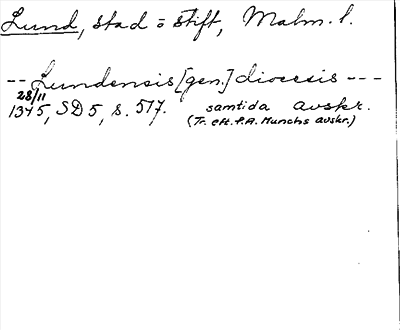 Lund, stad o stift, Malm. l.
-- Lundensis [gen.] diocesis ---
28/11
1345, SD 5, s. 517. samtida avskr.
(Tr. eft. P.A. Munchs avskr.)